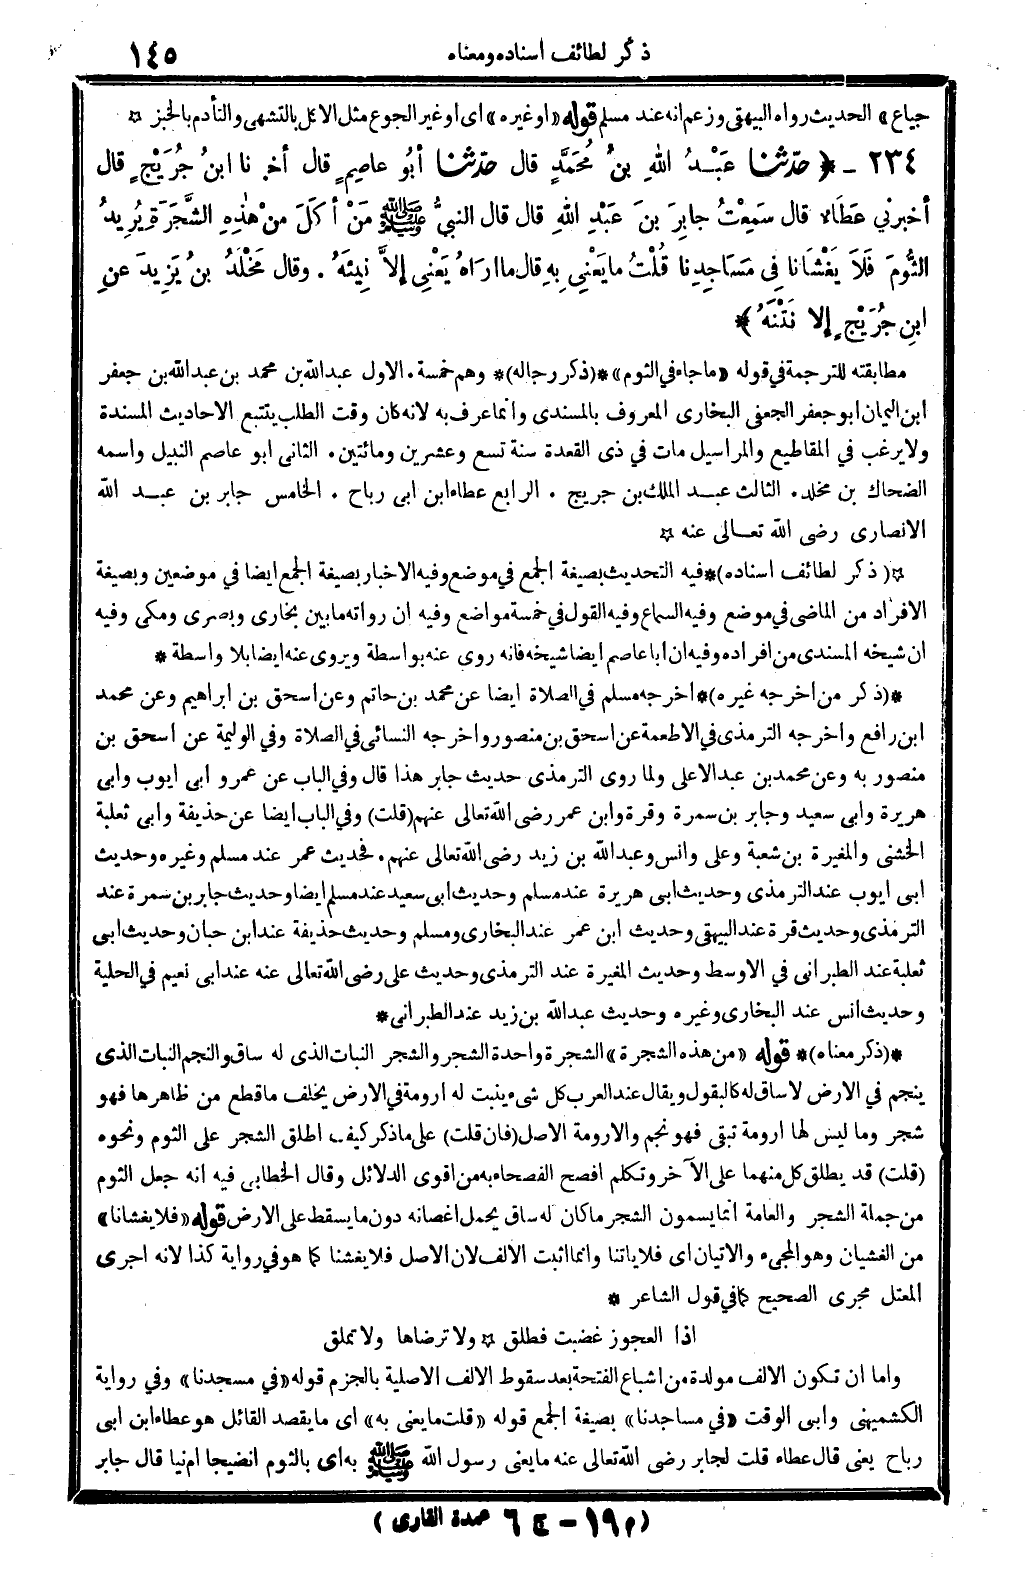 ذكر لطائف أسناده ومعناه ١٤٥
جياع» الحديث رواه البيهقى وزعم انه عند مسلم قوله «او غيره» اى او غير الجوع مثل الاكل بالتشهى والتأدم بالخبز ☆
٢٣٤ - ﴿ حَدَّثَنَا عَبْدُ اللهِ بنُ مُحَمَّدٍ قال حَدَّثَنَا أبُو عاصِمٍ قال أخبرنا ابنُ جُرَيْجٍ قال
أخبرني عَطَاء قال سَمِعْتُ جابِرَ بنَ عَبْدِ اللهِ قال قال النبيُّ ﷺ مَنْ أكَلَ مِنْ هٰذِهِ الشَّجَرَةِ يُرِيدُ
الثُّومَ فَلاَ يَغْشَانا فِى مَسَاجِدِنا قُلْتُ ما يَعْنِى بِهِ قال ما اراهُ يَعْنِى إلاَّ نِيئَهُ . وقال مَخْلَدُ بنُ يَزِيدَ عنِ
ابنِ جُرَيْجٍ إلا نَتْنَهُ ﴾
مطابقته للترجمة في قوله «ما جاء في الثوم» *(ذكر رجاله)* وهم خمسة. الاول عبدالله بن محمد بن عبدالله بن جعفر
ابن اليمان ابو جعفر الجعفى البخارى المعروف بالمسندى وانما عرف به لانه كان وقت الطلب يتتبع الاحاديث المسندة
ولا يرغب في المقاطيع والمراسيل مات في ذى القعدة سنة تسع وعشرين ومائتين. الثانى ابو عاصم النبيل واسمه
الضحاك بن مخلد. الثالث عبد الملك بن جريج . الرابع عطاء ابن ابى رباح . الخامس جابر بن عبد الله
الانصارى رضى الله تعالى عنه ☆
☆( ذكر لطائف اسناده)* فيه التحديث بصيغة الجمع في موضع وفيه الاخبار بصيغة الجمع ايضا في موضعين وبصيغة
الافراد من الماضى في موضع وفيه السماع وفيه القول في خمسة مواضع وفيه ان رواته ما بين بخارى وبصرى ومكى وفيه
ان شيخه المسندى من افراده وفيه ان ابا عاصم ايضا شيخه فانه روى عنه بواسطة ويروى عنه ايضا بلا واسطة *
*(ذكر من اخرجه غيره)* اخرجه مسلم في الصلاة ايضا عن محمد بن حاتم وعن اسحق بن ابراهيم وعن محمد
ابن رافع واخرجه الترمذى في الاطعمة عن اسحق بن منصور واخرجه النسائى في الصلاة وفي الوليمة عن اسحق بن
منصور به وعن محمد بن عبد الاعلى ولما روى الترمذى حديث جابر هذا قال وفي الباب عن عمرو ابى ايوب وابى
هريرة وابى سعيد وجابر بن سمرة وقرة وابن عمر رضى الله تعالى عنهم (قلت) وفي الباب ايضا عن حذيفة وابى ثعلبة
الخشنى والمغيرة بن شعبة وعلى وانس وعبدالله بن زيد رضى الله تعالى عنهم. فحديث عمر عند مسلم وغيره وحديث
ابى ايوب عند الترمذى وحديث ابى هريرة عند مسلم وحديث ابى سعيد عند مسلم ايضا وحديث جابر بن سمرة عند
الترمذى وحديث قرة عند البيهقى وحديث ابن عمر عند البخارى ومسلم وحديث حذيفة عند ابن حبان وحديث ابى
ثعلبة عند الطبرانى في الاوسط وحديث المغيرة عند الترمذى وحديث على رضى الله تعالى عنه عند ابى نعيم في الحلية
وحديث انس عند البخارى وغيره وحديث عبدالله بن زيد عند الطبرانى *
*(ذكر معناه)* قوله «من هذه الشجرة» الشجرة واحدة الشجر والشجر النبات الذى له ساق والنجم النبات الذى
ينجم في الارض لا ساق له كالبقول ويقال عند العرب كل شىء ينبت له ارومة في الارض يخلف ما قطع من ظاهرها فهو
شجر وما ليس لها ارومة تبقى فهو نجم والارومة الاصل (فان قلت) على ما ذكر كيف اطلق الشجر على الثوم ونحوه
(قلت) قد يطلق كل منهما على الآخر وتكلم افصح الفصحاء به من اقوى الدلائل وقال الخطابى فيه انه جعل الثوم
من جملة الشجر والعامة انما يسمون الشجر ما كان له ساق يحمل اغصانه دون ما يسقط على الارض قوله «فلا يغشانا»
من الغشيان وهو المجىء والاتيان اى فلا ياتنا وانما اثبت الالف لان الاصل فلا يغشنا كما هو في رواية كذا لانه اجرى
المعتل مجرى الصحيح كما في قول الشاعر *
اذا العجوز غضبت فطلق ☆ ولا ترضاها ولا تملق
واما ان تكون الالف مولدة من اشباع الفتحة بعد سقوط الالف الاصلية بالجزم قوله «في مسجدنا» وفي رواية
الكشميهنى وابى الوقت «في مساجدنا» بصيغة الجمع قوله «قلت ما يعنى به» اى ما يقصد القائل هو عطاء ابن ابى
رباح يعنى قال عطاء قلت لجابر رضى الله تعالى عنه ما يعنى رسول الله ﷺ به اى بالثوم انضيجا ام نيا قال جابر
(م ١٩ - ج ٦ عمدة القارى)